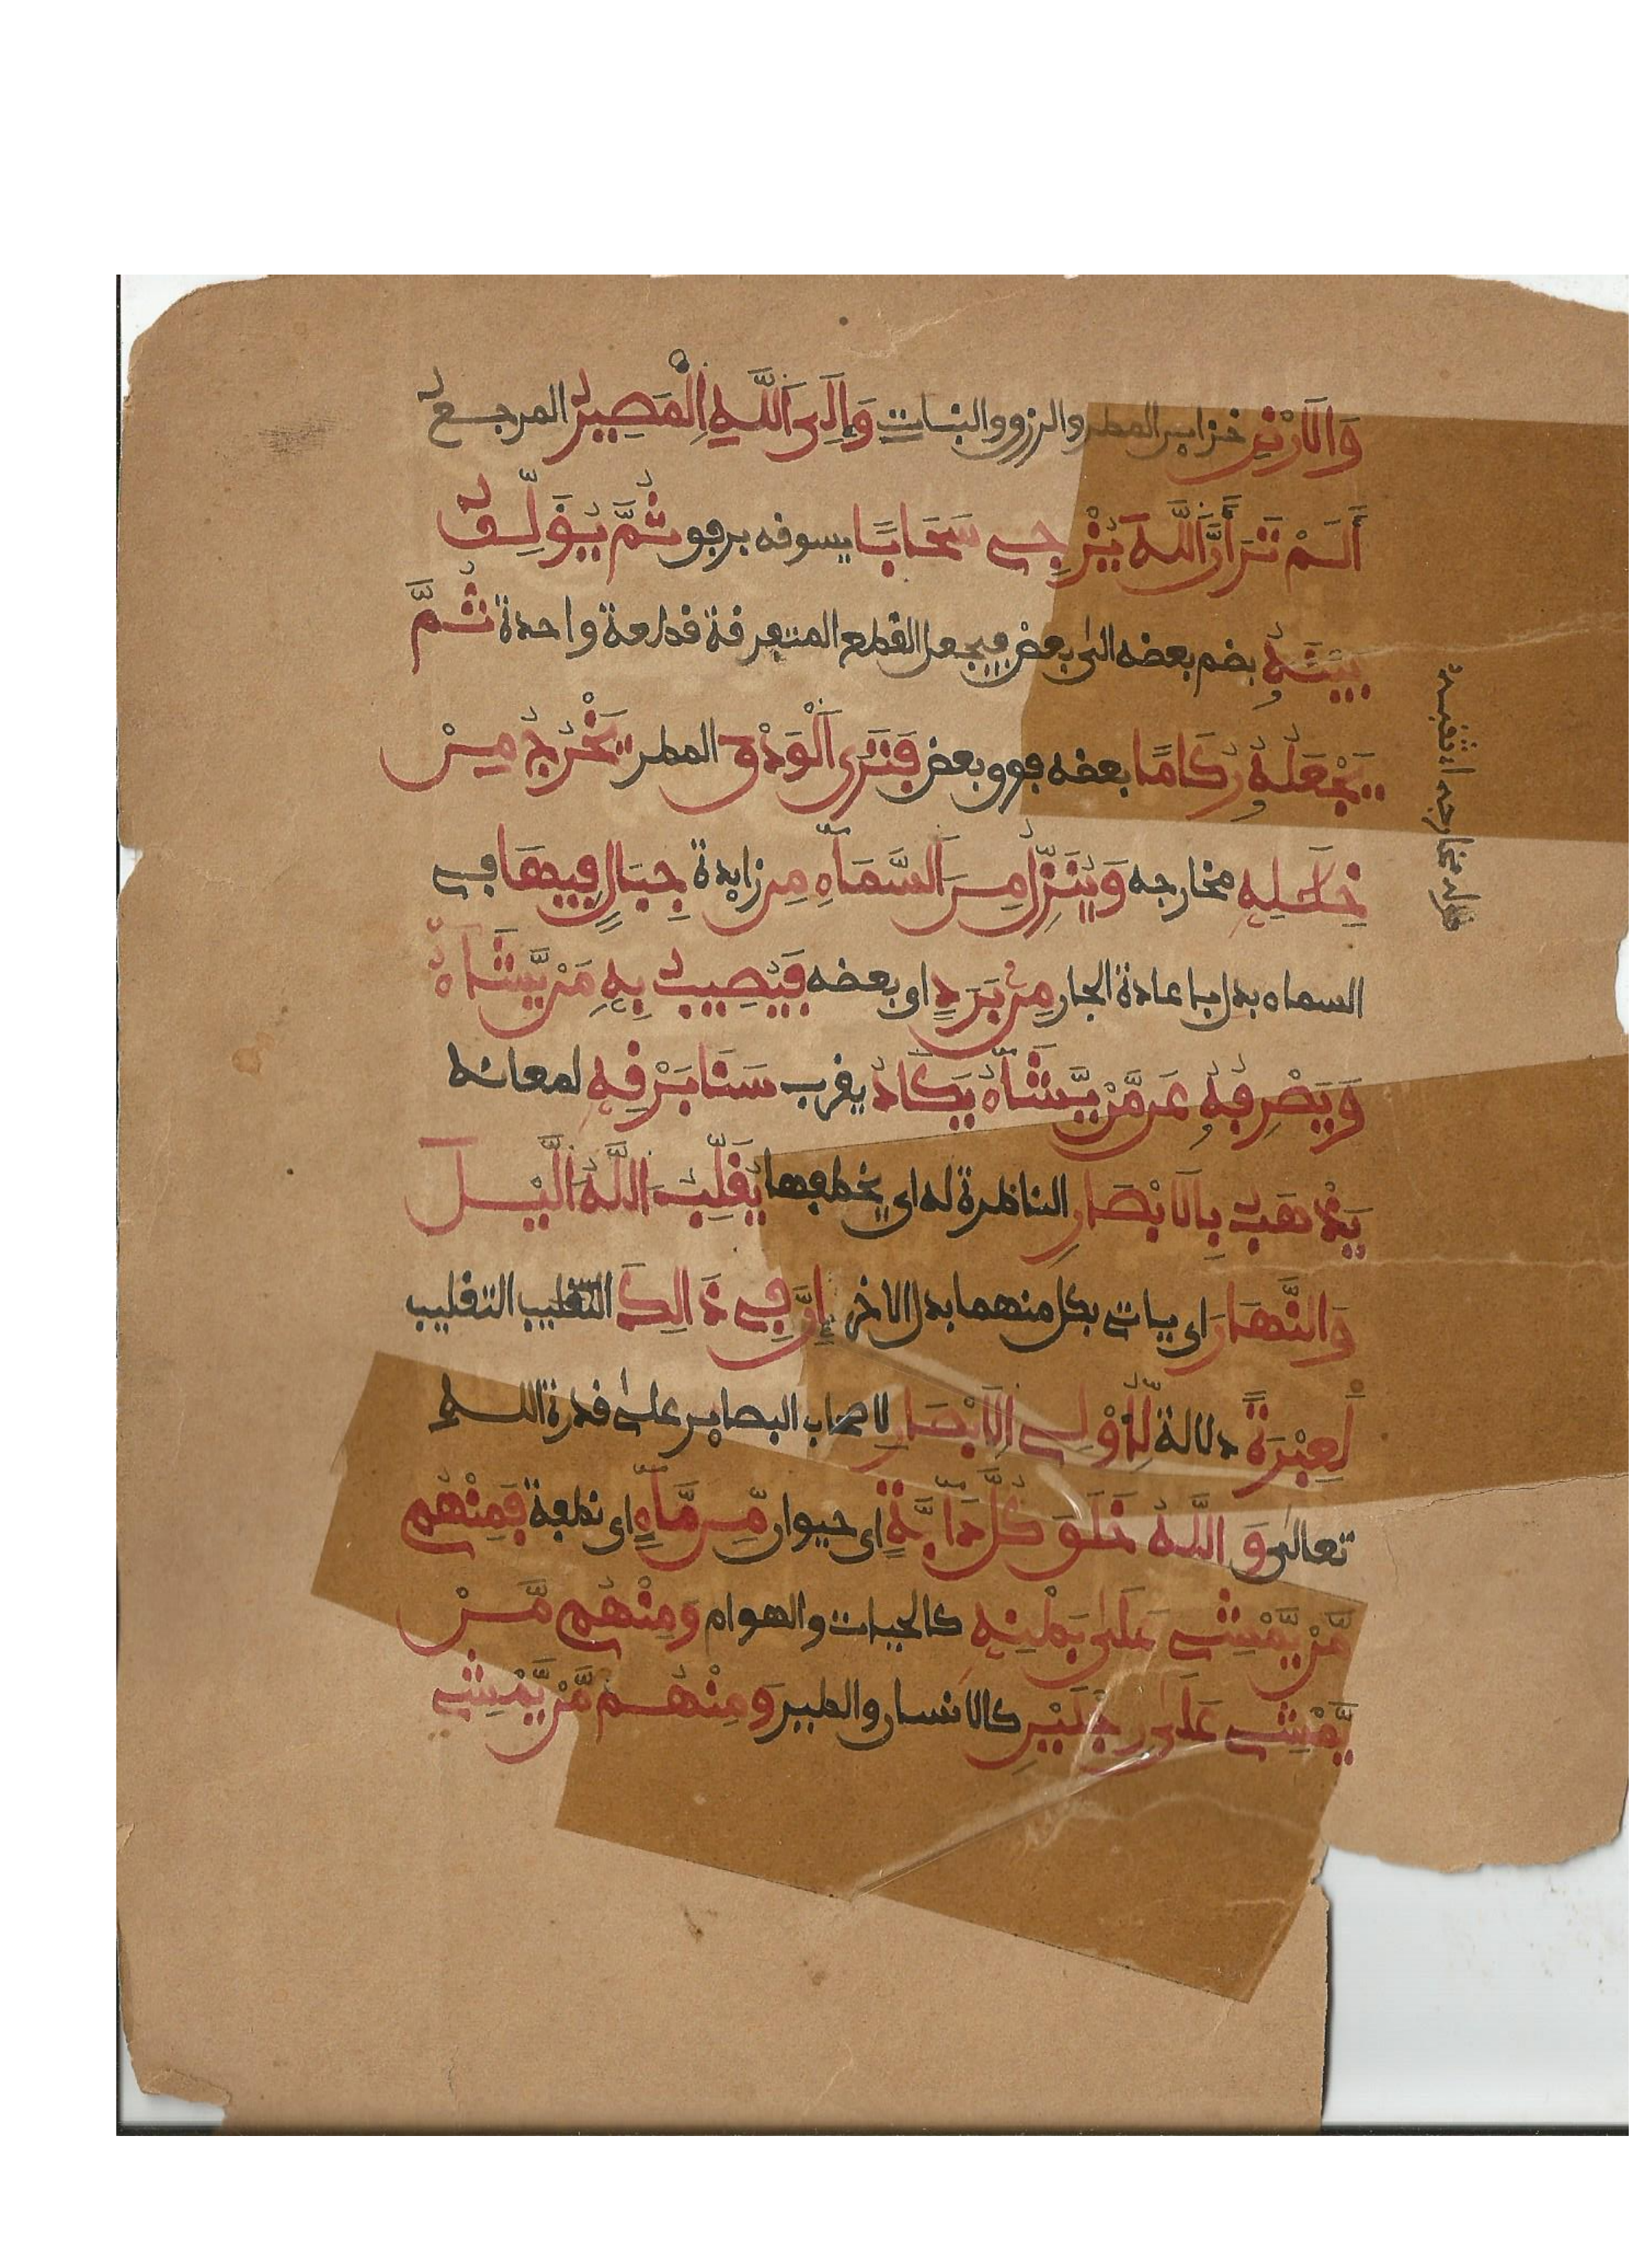 وَالَارْضِ خزاين المطر والرزق والنبات وَإِلَى اَللَّهِ اِلْمَصِيرُ المرجع
أَلَمْ تَرَ أَنَّ اَللَّهَ يُزْجِے سَحَابًا يسوقه برفق ثُمَّ يُوَلِّفُ
بَيْنَهُۥ يضم بعضه الى بعض فيجعل القطع المتفرقة قطعة واحدة ثُمَّ
يَجْعَلُهُۥ رُكَامًا بعضه فوق بعض فَتَرَى اَلْوَدْقَ المطر يَخْرُجُ مِنْ
خِلَٰلِهِۦ مخارجه وَيُنَزِّلُ مِنَ اَلسَّمَآءِ مِن زايدة جِبَالٍ فِيهَا فے
السماء بدل باعادة الجار مِنۢ بَرَدٍ اى بعضه فَيُصِيبُ بِهِۦ مَنْ يَّشَآءُ
وَيَصْرِفُهُۥ عَن مَّنْ يَّشَآءُ يَكَادُ يقرب سَنَا بَرْقِهِۦ لمعانه
يَذْهَبُ بِالَابْصَارِ الناظرة له اى يخطفها يُقَلِّبُ اَللَّهُ اَلَّيْلَ
وَالنَّهَارَ اى ياتے بكل منهما بدل الاخر إِنَّ فِے ذَالِكَ التقليب التقليب
لَعِبْرَةً دلالة لِّأُوْلِے اِلَابْصَارِ لاصحاب البصاير على قدرة الله
تعالى وَاللَّهُ خَلَقَ كُلَّ دَآبَّةٍ اى حيوان مِّن مَّآءٍ اى نطفة فَمِنْهُم
مَّنْ يَّمْشِے عَلَىٰ بَطْنِهِۦ كالحيات والهوام وَمِنْهُم مَّنْ
يَّمْشِے عَلَىٰ رِجْلَيْنِ كالانسان والطير وَمِنْهُم مَّنْ يَّمْشِے
قوله مخارجه